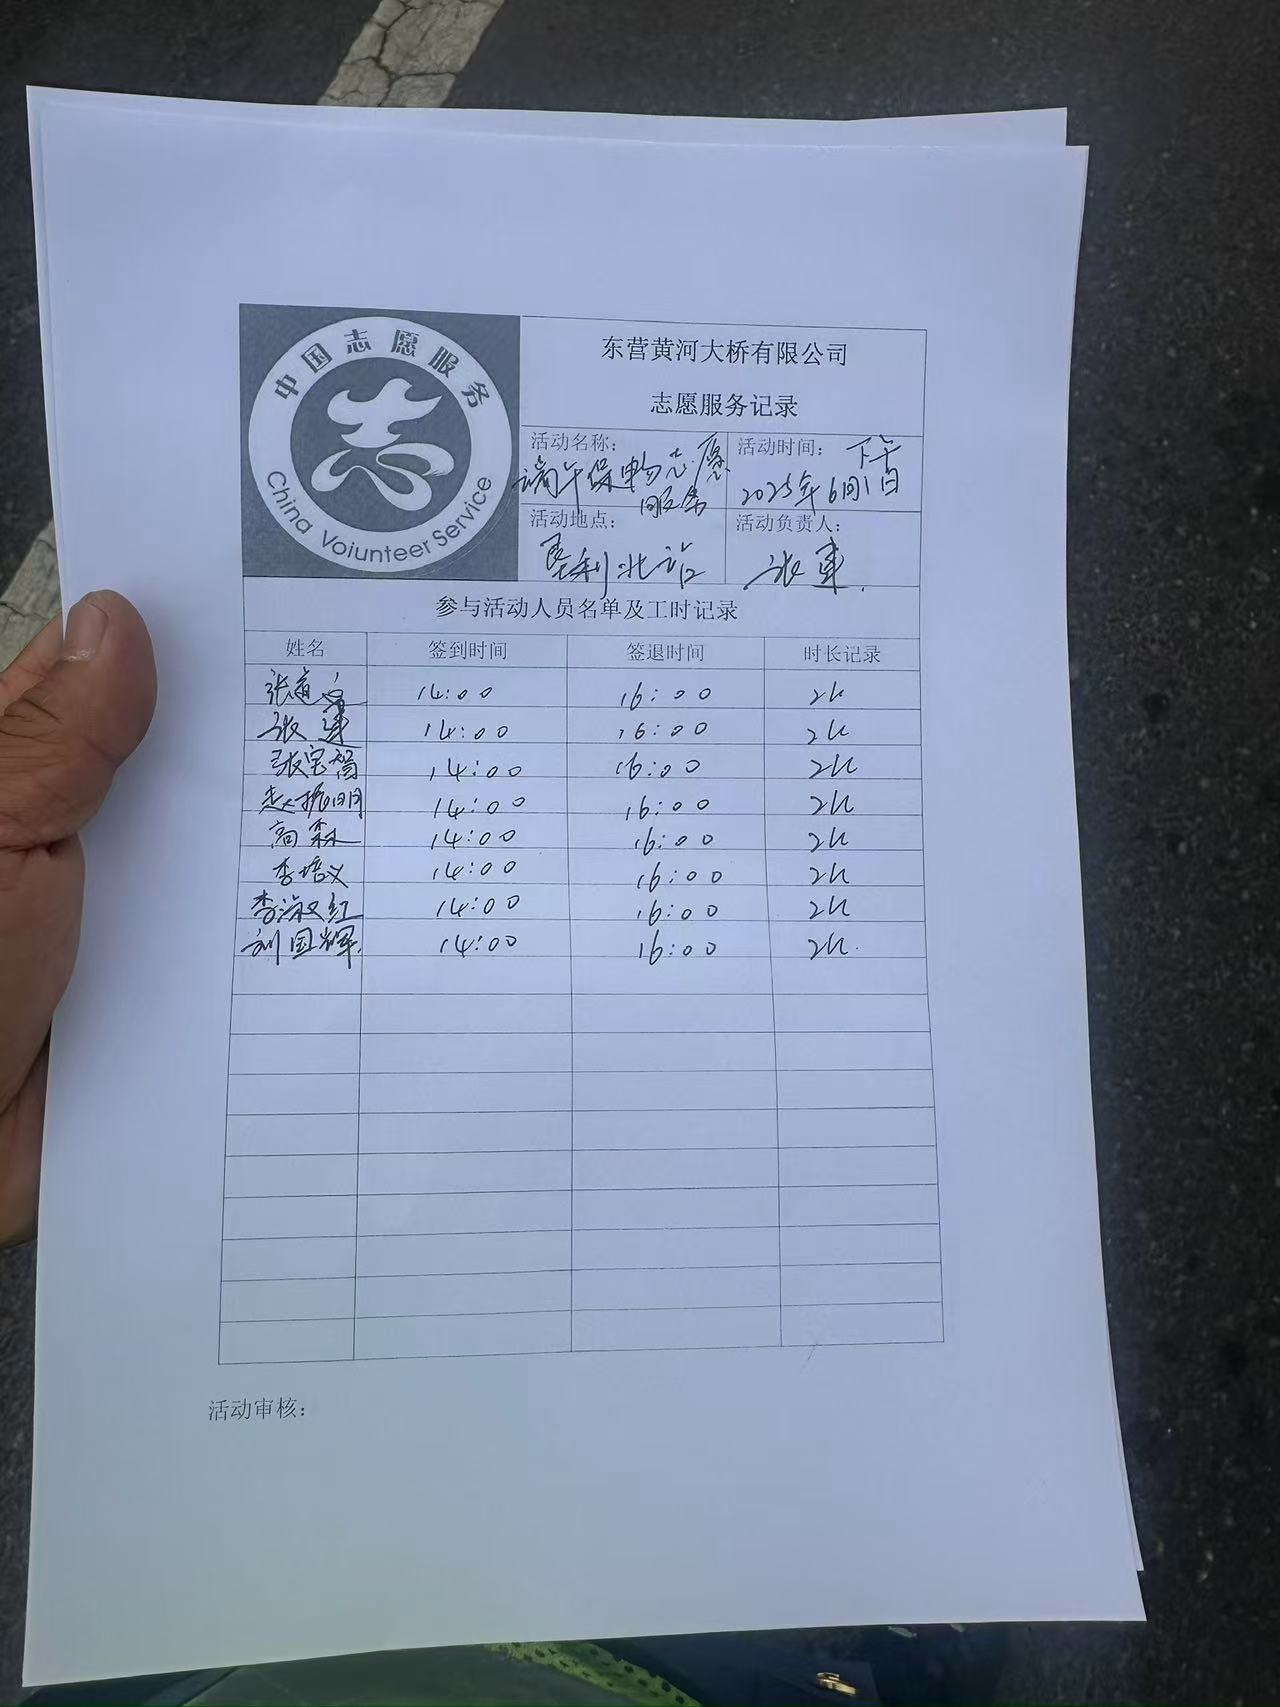 中国志愿服务
志
China Voiunteer Service
东营黄河大桥有限公司
志愿服务记录
活动名称：端午保畅志愿服务
活动时间：下午
2025年6月1日
活动地点：垦利北站
活动负责人：张建.
参与活动人员名单及工时记录
姓名 签到时间 签退时间 时长记录
张道 14:00 16:00 2h
张建 14:00 16:00 2h
张宝智 14:00 16:00 2h
赵振明 14:00 16:00 2h
高森 14:00 16:00 2h
李培义 14:00 16:00 2h
李淑红 14:00 16:00 2h
刘国辉. 14:00 16:00 2h.
活动审核：